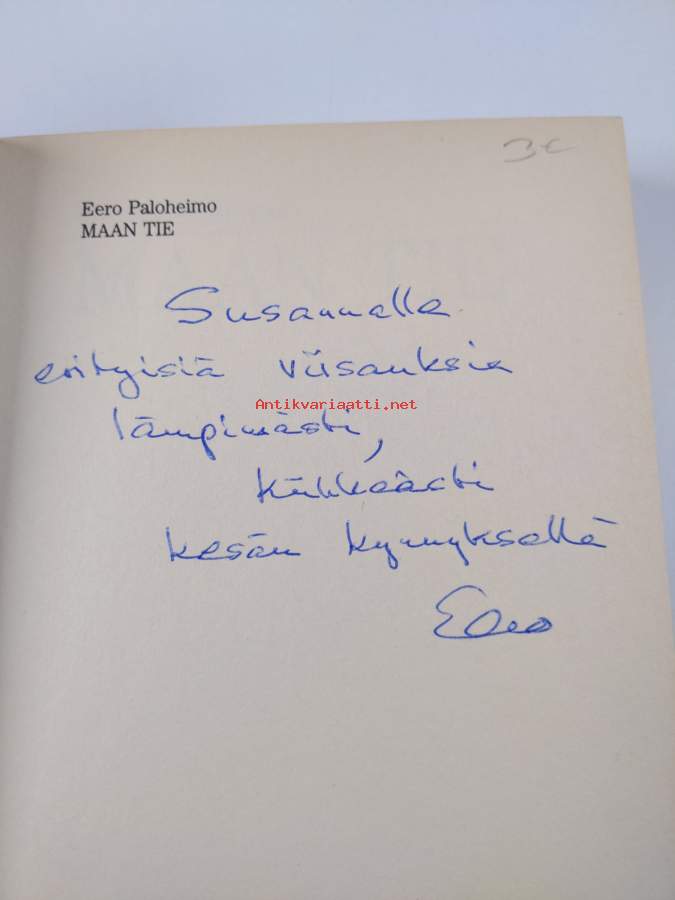 3€
Eero Paloheimo
MAAN TIE
Susannalle
erityisiä viisauksia
Antikvariaatti.net
lämpimästi,
kiihkeästi
kesän kynnyksellä
Eero